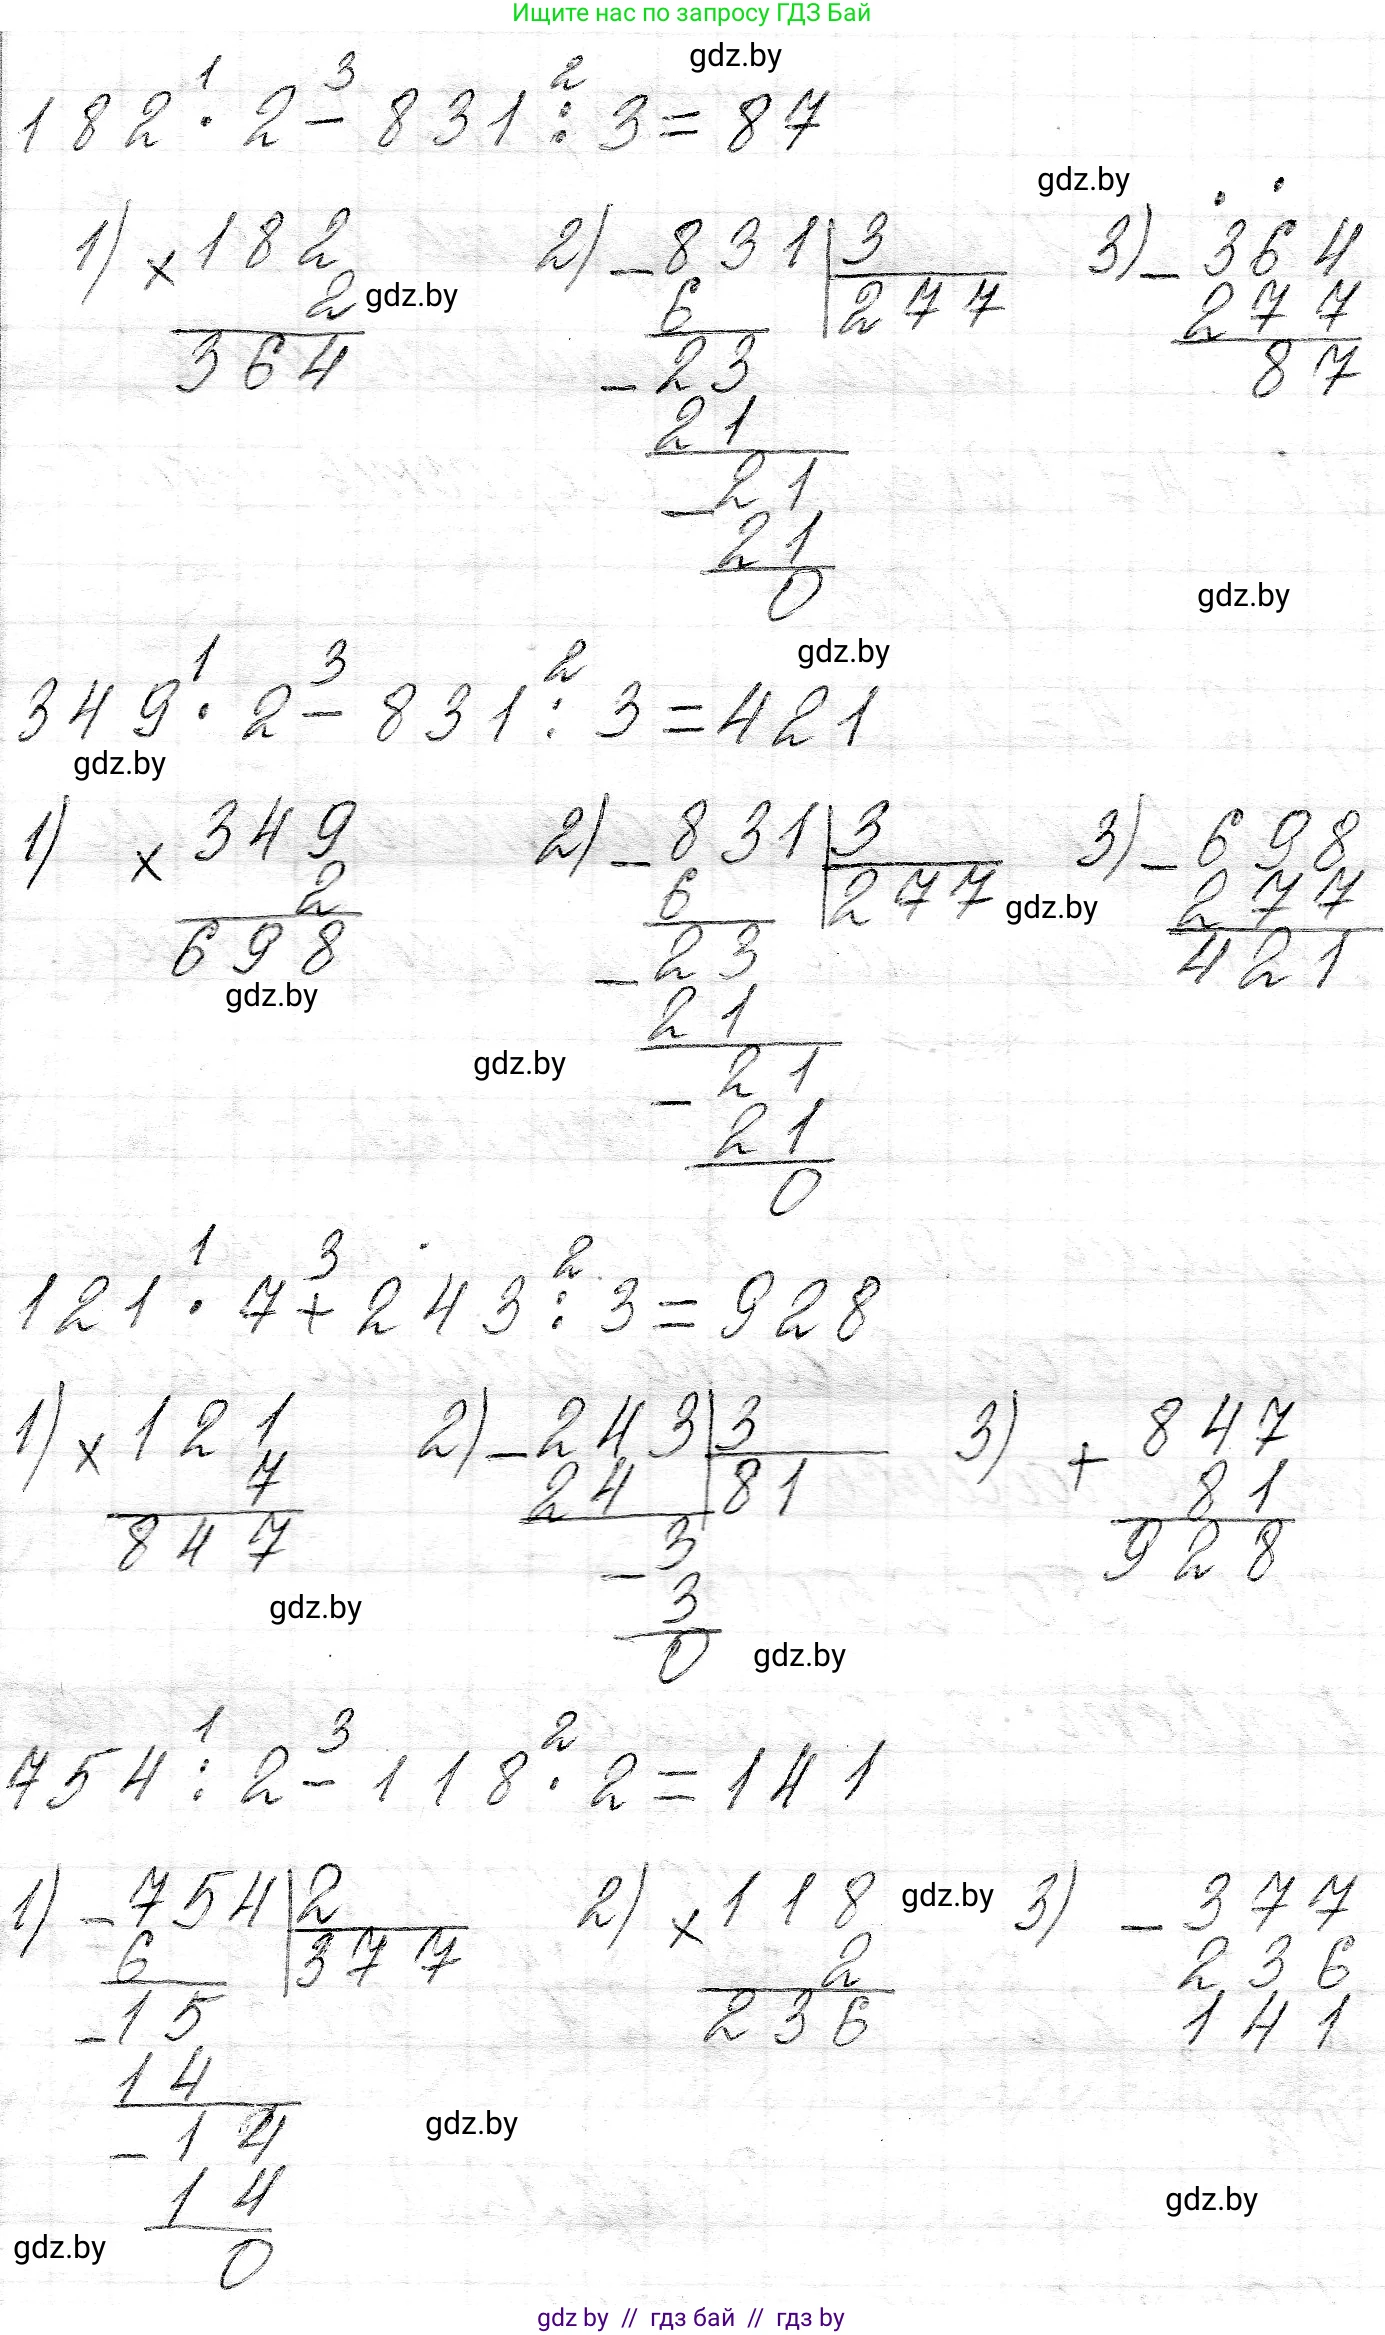 Ищите нас по запросу ГДЗ Бай
gdz.by
1 3 2
182 · 2 - 831 : 3 = 87
gdz.by
1) × 182 2) - 831 | 3 3) - 364
2 gdz.by 6 277 277
364 - 23 87
21
- 21
21
0
gdz.by
gdz.by
1 3 2
349 · 2 - 831 : 3 = 421
gdz.by
1) × 349 2) - 831 | 3 3) - 698
2 6 277 gdz.by 277
698 - 23 421
gdz.by
21
gdz.by - 21
21
0
1 3 2
121 · 7 + 243 : 3 = 928
1) × 121 2) - 243 | 3 3) + 847
7 24 81 81
847 - 3 928
gdz.by 3
0 gdz.by
1 3 2
754 : 2 - 118 · 2 = 141
1) - 754 | 2 2) × 118 gdz.by 3) - 377
6 377 2 236
- 15 236 141
14
- 14 gdz.by
14 gdz.by
gdz.by 0
gdz by // гдз бай // гдз by